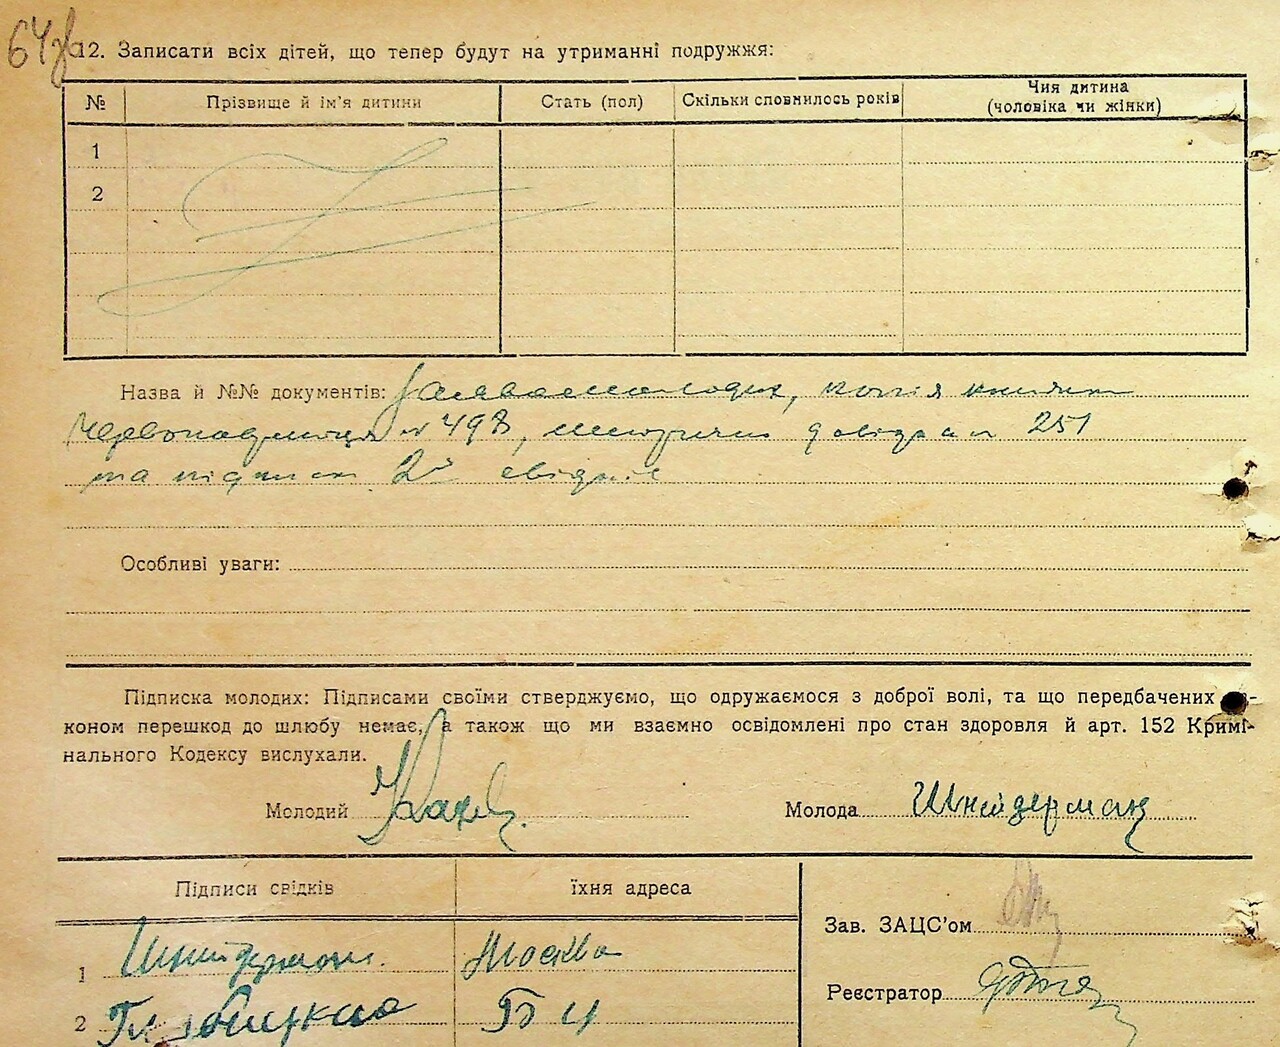 64
12. Записати всіх дітей, що тепер будут на утриманні подружжя:
№ Прізвище й ім'я дитини Стать (пол) Скільки сповнилось років Чия дитина (чоловіка чи жінки)
1
2
Назва й №№ документів: заява молодих, копія книжки
Червоноармійця № 498, довідка 251
та підписи 2х свідків
Особливі уваги:
Підписка молодих: Підписами своїми стверджуємо, що одружаємося з доброї волі, та що передбачених за-
коном перешкод до шлюбу немає, а також що ми взаємно освідомлені про стан здоровля й арт. 152 Кримі-
нального Кодексу вислухали.
Молодий Молода Шнейдерман
Підписи свідків їхня адреса
Зав. ЗАЦС'ом
1 Шнейдерман Москва
Реєстратор
2